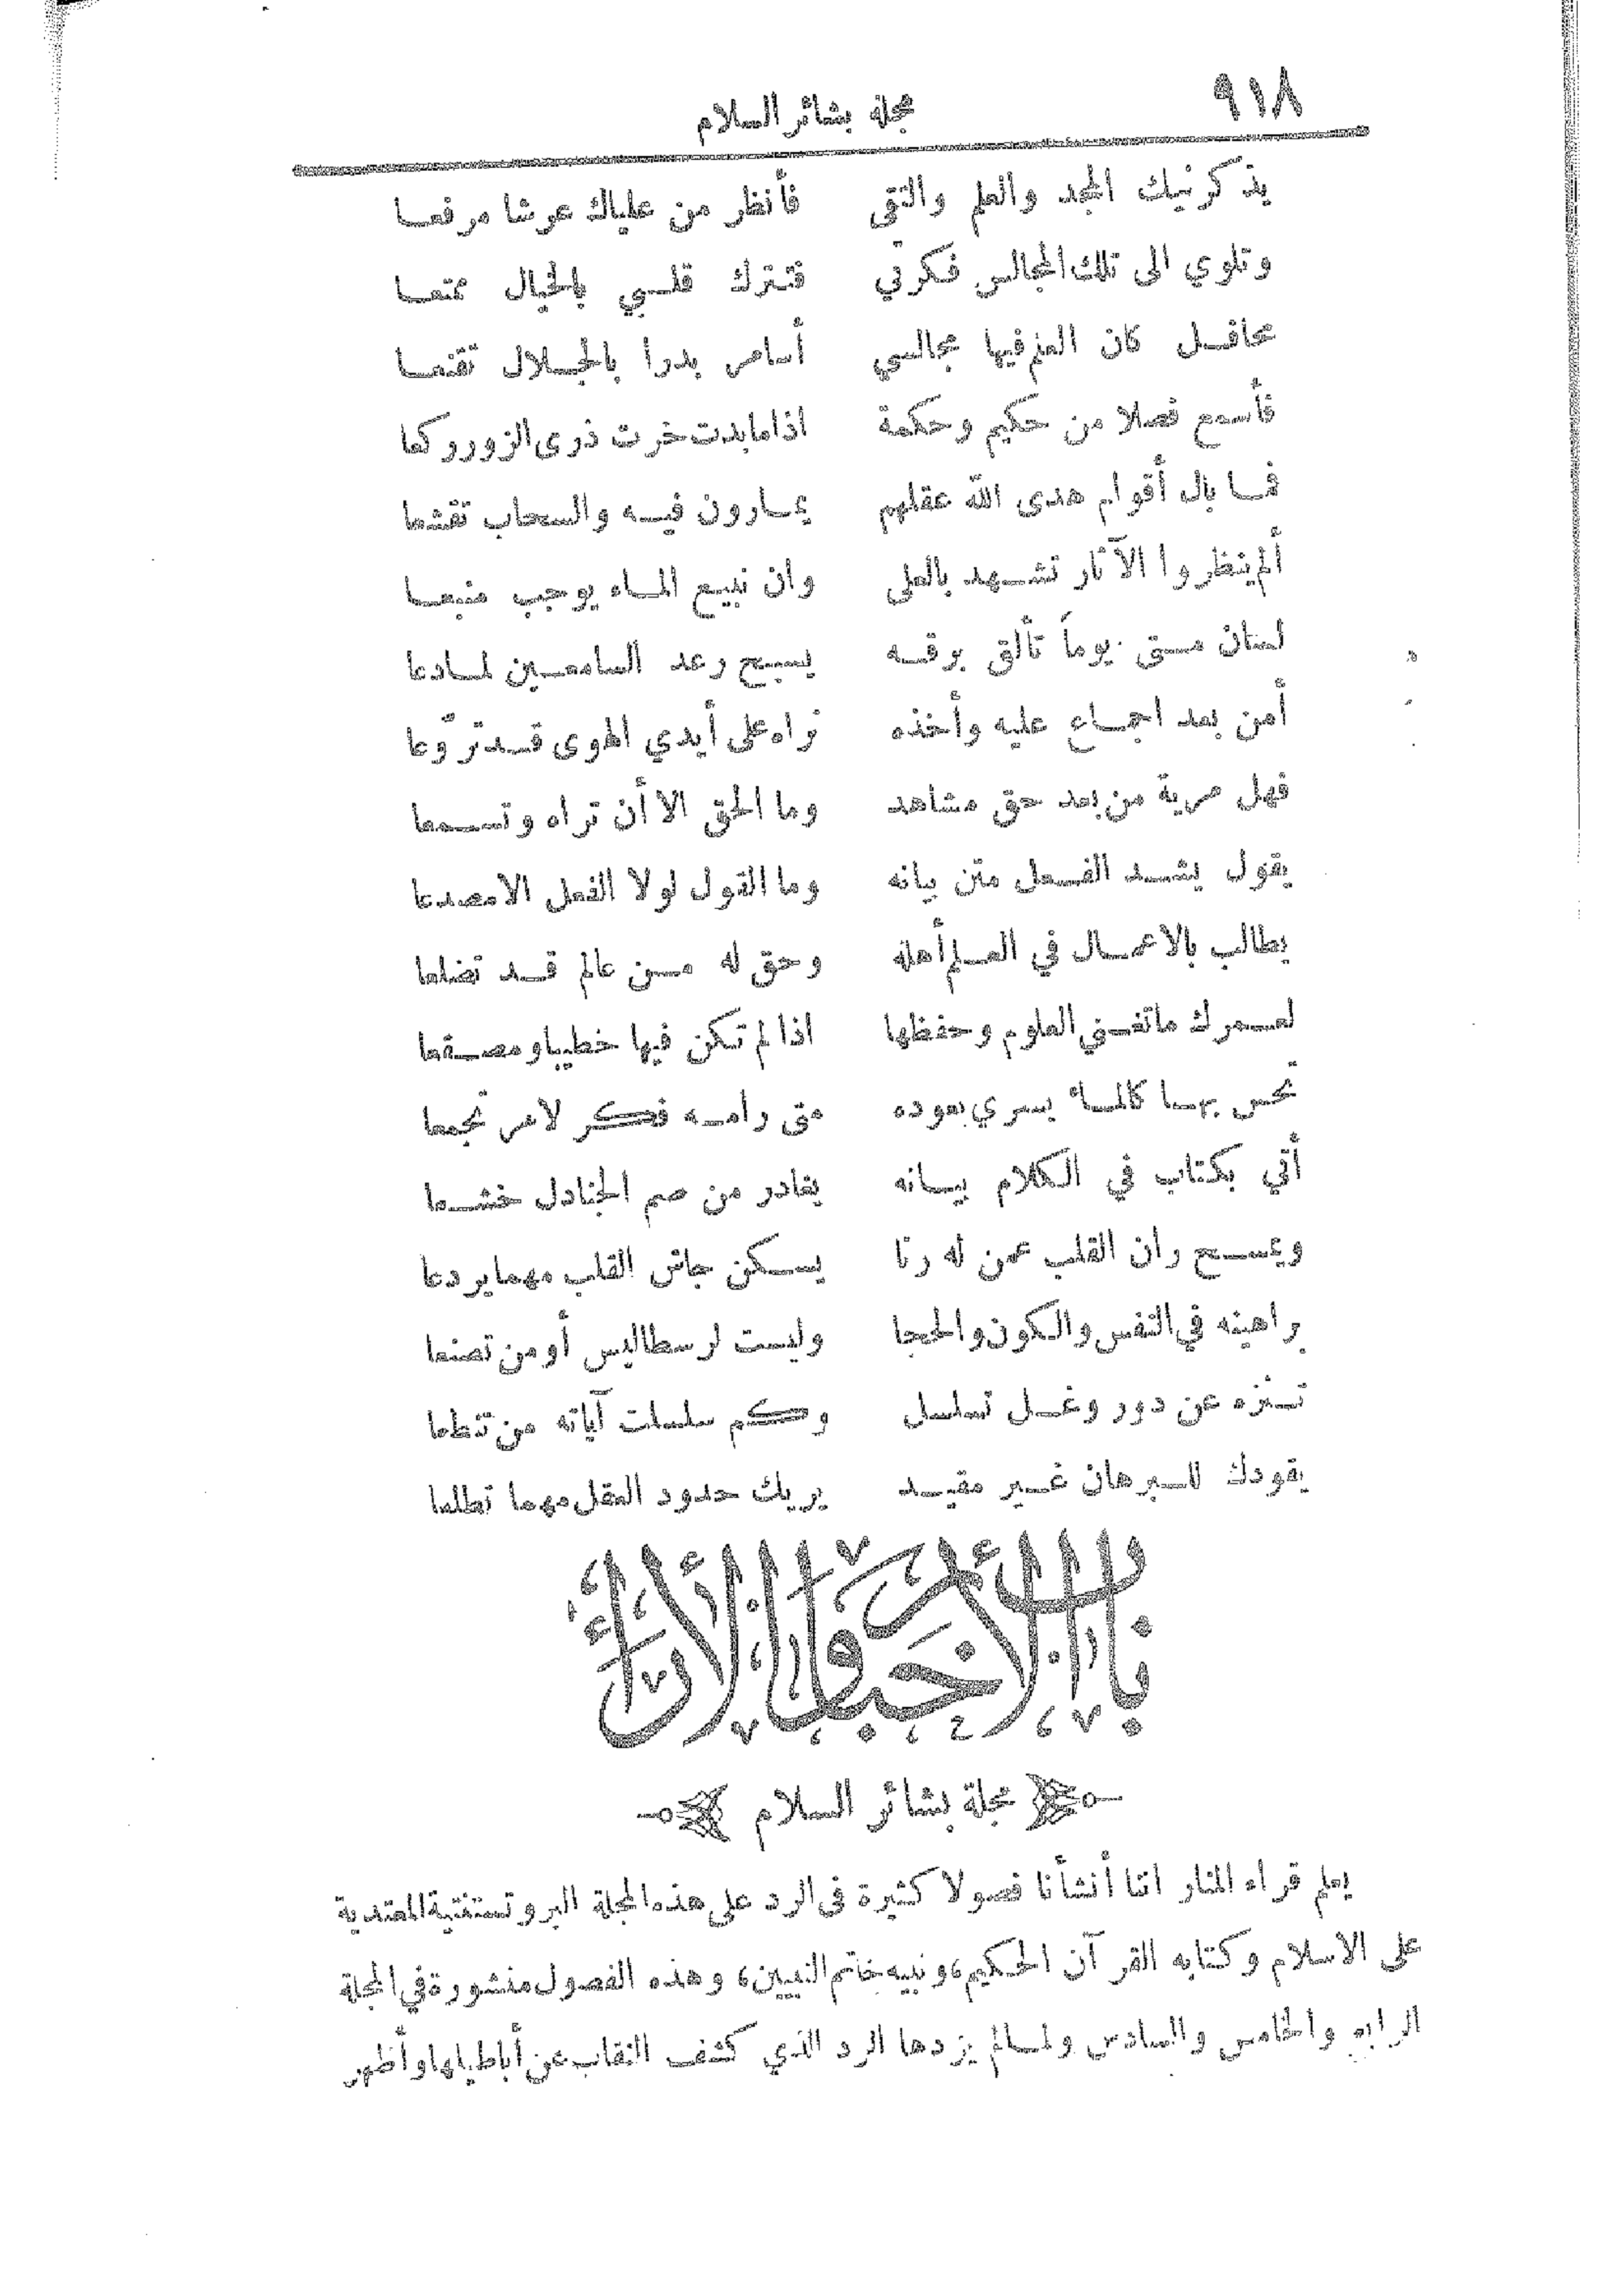 ٩١٨ مجلة بشائر السلام
يذكرنيك المجد والعلم والتقى فأنظر من علياك عرشا مرفعا
وتلوي الى تلك المجالس فكرتي فتترك قلبي بالخيال ممتعا
محافل كان العلم فيها مجالسي أسامر بدرا بالجلال تقنعا
فأسمع فصلا من حكيم وحكمة اذا ما بدت خرت ذرى الزور ركعا
فما بال أقوام هدى الله عقلهم يمارون فيه والسحاب تقشعا
ألم ينظروا الآثار تشهد بالعلى وان نبيع الماء يوجب منبعا
لسان متى يوماً تألق برقه يسبح رعد السامعين لما دعا
أمن بعد اجماع عليه وأخذه تراه على أيدي الهوى قد توّعا
فهل مرية من بعد حق مشاهد وما الحق الا أن تراه وتسمعا
يقول يشد الفعل متن بيانه وما القول لولا الفعل الا مصدعا
يطالب بالاعمال في العلم أهله وحق له من عالم قد تضلعا
لعمرك ما تغني العلوم وحفظها اذا لم تكن فيها خطيبا ومصقعا
تحس بها كالماء يسري بعوده متى رامه فكر لامر تجمعا
أتى بكتاب في الكلام بيانه يغادر من صم الجنادل خشعا
ويمسح ران القلب عمن له رنا يسكن جاش القلب مهما يردعا
براهينه في النفس والكون والحجا وليست لرسطاليس أو من تصنعا
تنزه عن دور وغل تسلسل وكم سلسلت آياته من تنطعا
يقودك للبرهان غير مقيد يريك حدود العقل مهما تطلعا
باب الأخبار والآراء
مجلة بشائر السلام
يعلم قراء المنار اننا أنشأنا فصولا كثيرة في الرد على هذه المجلة البروتستنتية المعتدية
على الاسلام وكتابه القرآن الحكيم، ونبيه خاتم النبيين، وهذه الفصول منشورة في المجلة
الرابع والخامس والسادس ولما لم يزدها الرد الذي كشف النقاب عن أباطيلها وأظهر